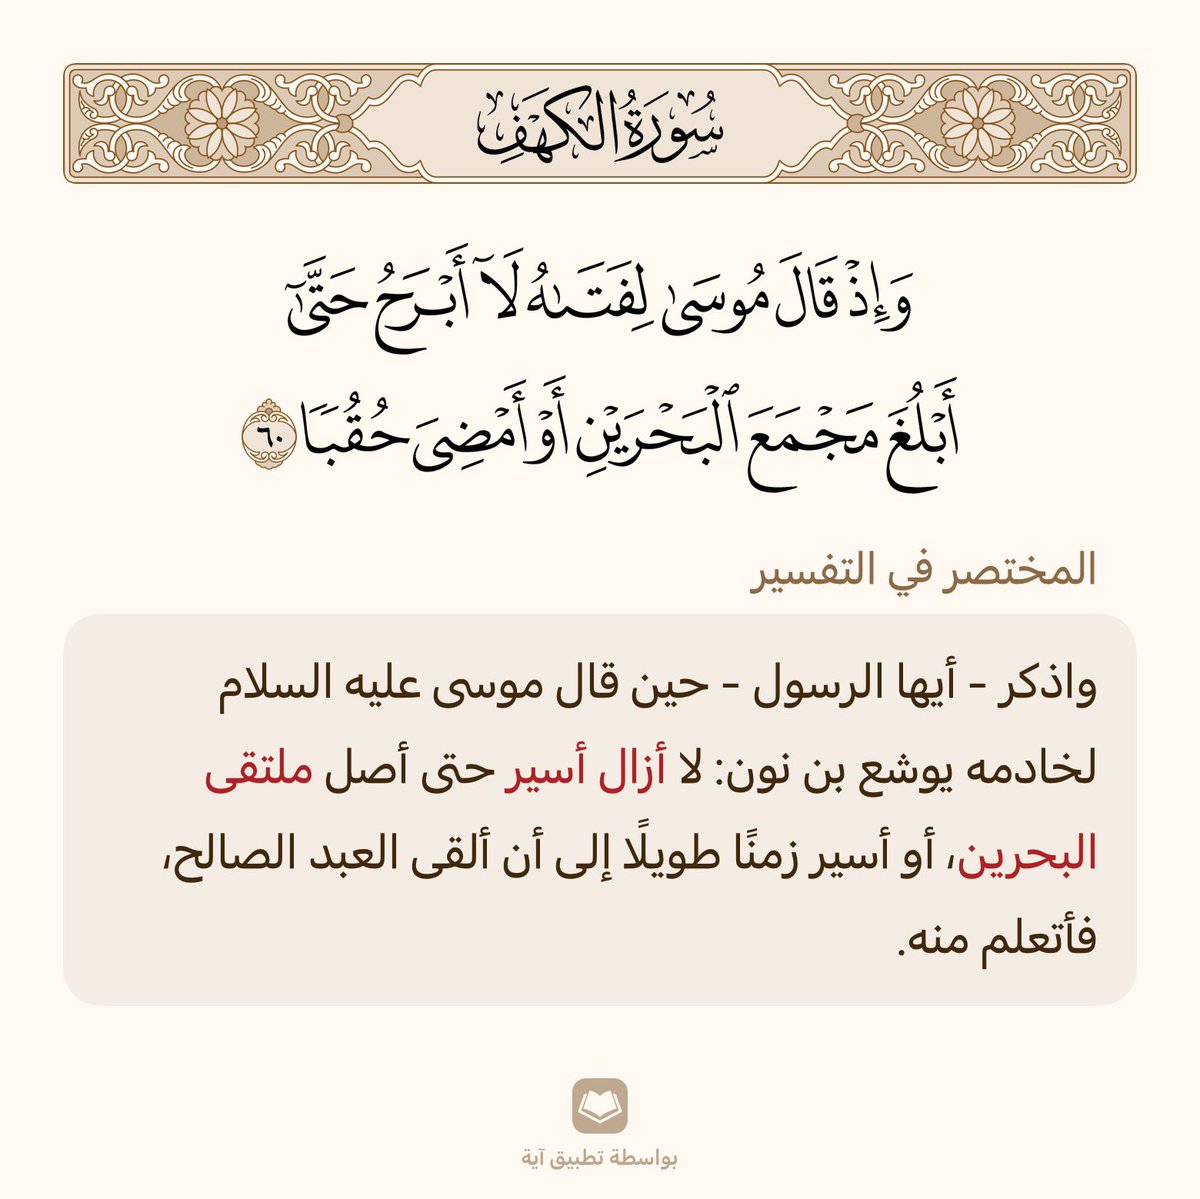 سُورَةُ الكَهْفِ
وَإِذْ قَالَ مُوسَىٰ لِفَتَىٰهُ لَآ أَبْرَحُ حَتَّىٰٓ
أَبْلُغَ مَجْمَعَ ٱلْبَحْرَيْنِ أَوْ أَمْضِىَ حُقُبًا ٦٠
المختصر في التفسير
واذكر - أيها الرسول - حين قال موسى عليه السلام
لخادمه يوشع بن نون: لا أزال أسير حتى أصل ملتقى
البحرين، أو أسير زمنًا طويلًا إلى أن ألقى العبد الصالح،
فأتعلم منه.
بواسطة تطبيق آية